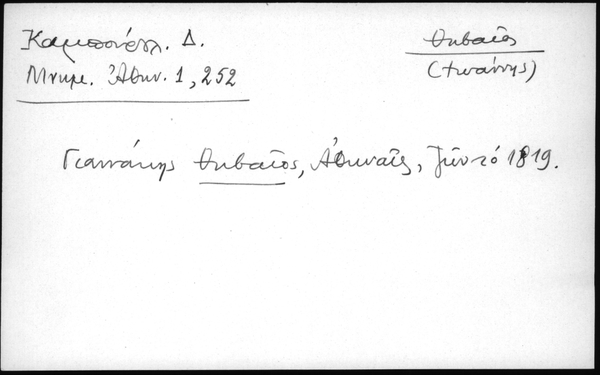 Καμπούρογλ. Δ.
Μνημ. Ἀθην. 1, 252
Θηβαῖος
(Ἰωάννης)
Γιαννάκης Θηβαῖος, Ἀθηναῖος, ζῶν τό 1819.